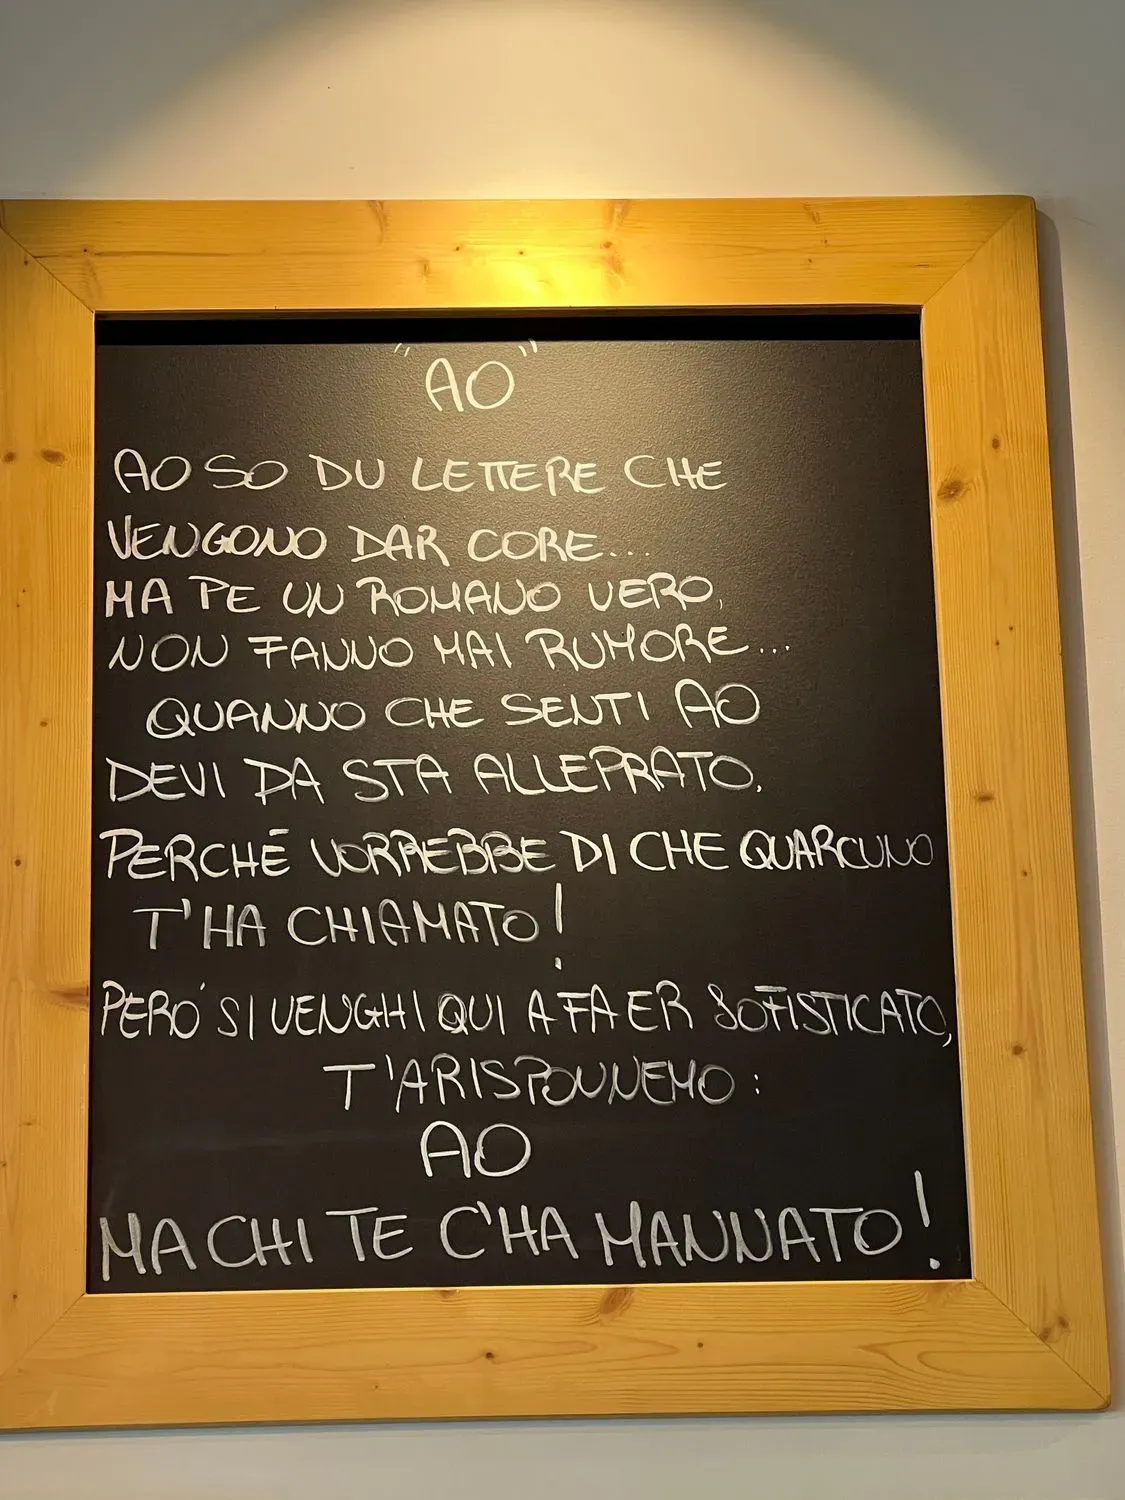 "AO"
AO SO DU LETTERE CHE
VENGONO DAR CORE...
MA PE UN ROMANO VERO,
NON FANNO MAI RUMORE...
QUANNO CHE SENTI AO
DEVI DA STA ALLEPRATO.
PERCHÉ VORREBBE DI CHE QUARCUNO
T'HA CHIAMATO!
PERO' SI VENGHI QUI A FA ER SOFISTICATO,
T'ARISPONNEMO:
AO
MA CHI TE C'HA MANNATO!